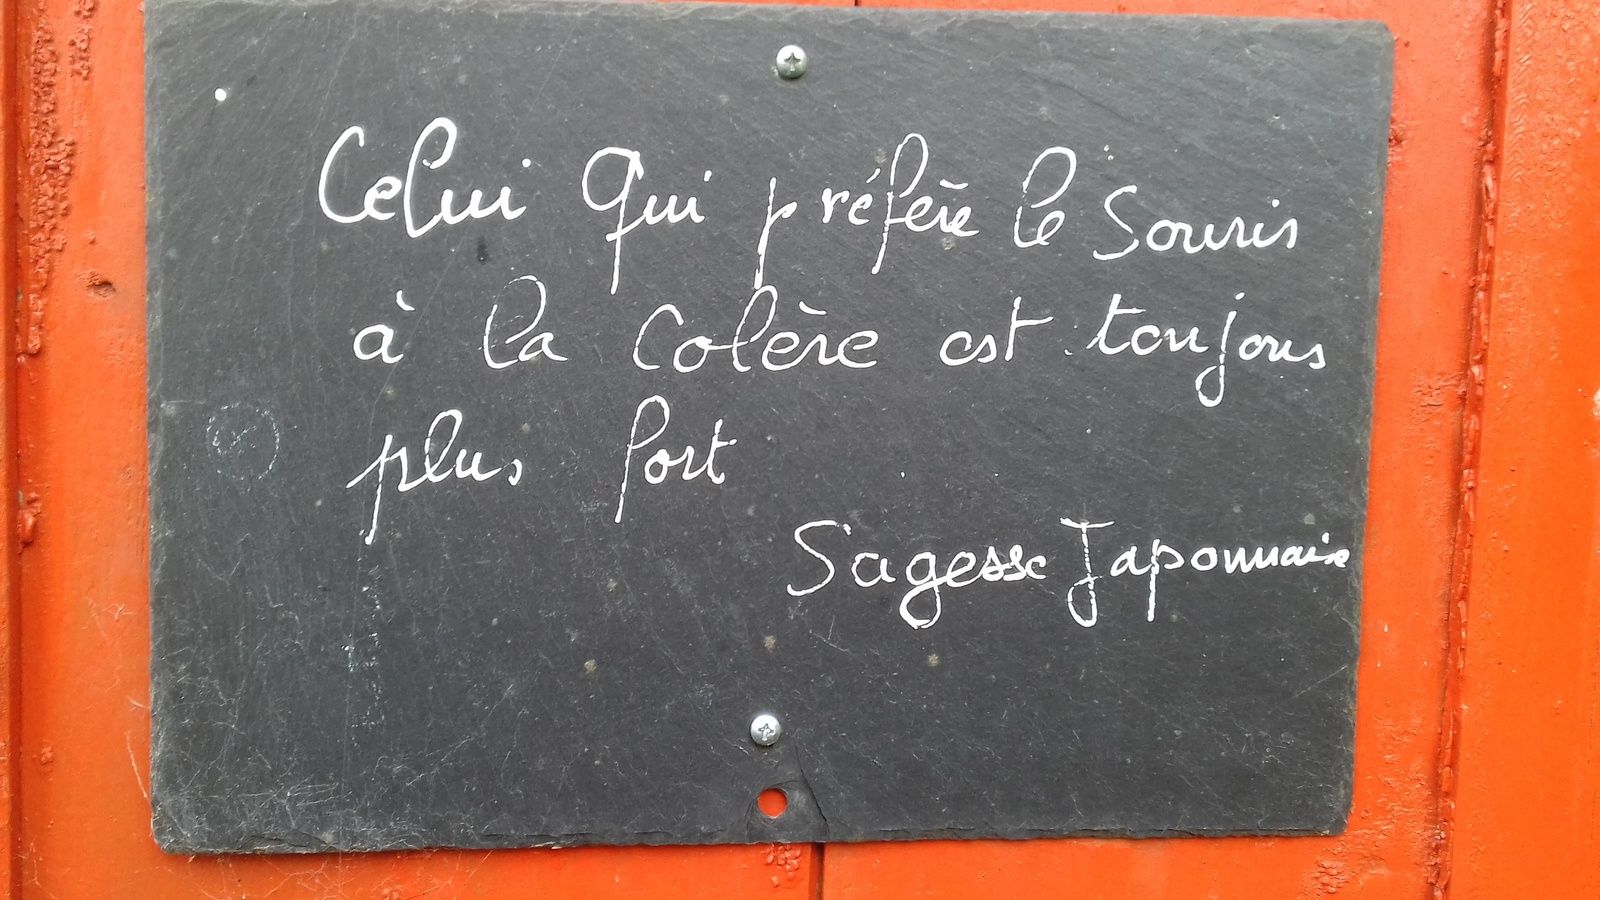 Celui Qui préfère le Souris
à la Colère est toujous
plus fort
Sagesse Japonnaise